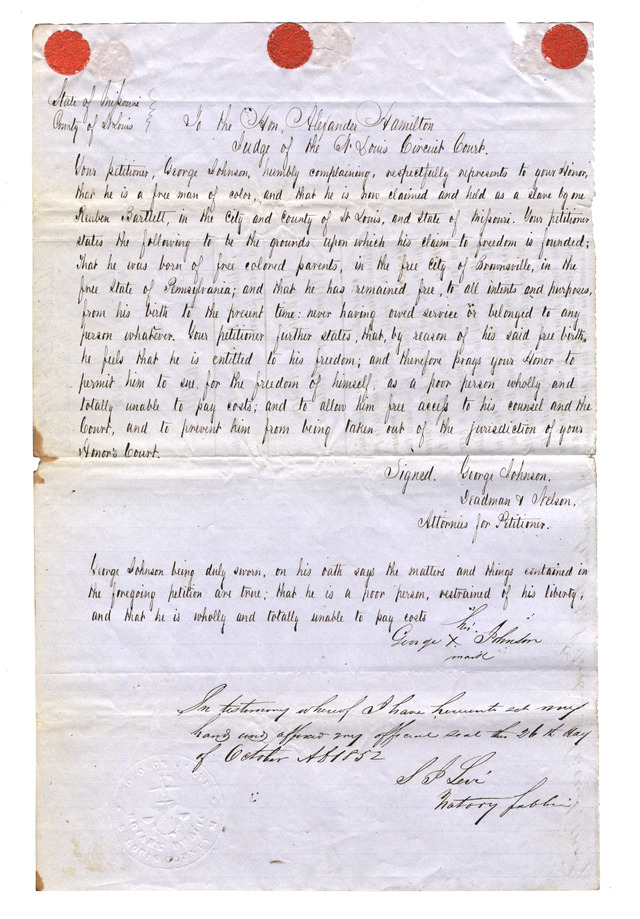 State of Missouri
County of St Louis
To the Hon, Alexander Hamilton
Judge of the St Louis Circuit Court.
Your petitioner, George Johnson, humbly complaining, respectfully represents to your Honor,
that he is a free man of color, and that he is now claimed and held as a slave by one
Reuben Bartlett, in the City and County of St Louis, and state of Missouri. Your petitioner
states the following to be the grounds upon which his claim to freedom is founded;
That he was born of free colored parents, in the free City of Brownsville, in the
free State of Pennsylvania; and that he has remained free, to all intents and purposes,
from his birth to the present time: never having owed service or belonged to any
person whatever. Your petitioner further states, that, by reason of his said free birth,
he feels that he is entitled to his freedom; and therefore prays your Honor to
permit him to sue, for the freedom of himself, as a poor person wholly and
totally unable to pay costs; and to allow him free access to his counsel and the
Court, and to prevent him from being taken out of the jurisdiction of your
Honor's Court.
Signed. George Johnson.
Deadman & Nelson,
Attornies for Petitioner.
George Johnson being duly sworn, on his oath says the matters and things contained in
the foregoing petition are true; that he is a poor person, restrained of his liberty,
and that he is wholly and totally unable to pay costs
"his"
George X Johnson
mark
In testimony whereof I have hereunto set my
hand and affixed my official seal the 26th day
of October AD 1852
S J Levi
Notary Public
NOTARY PUBLIC